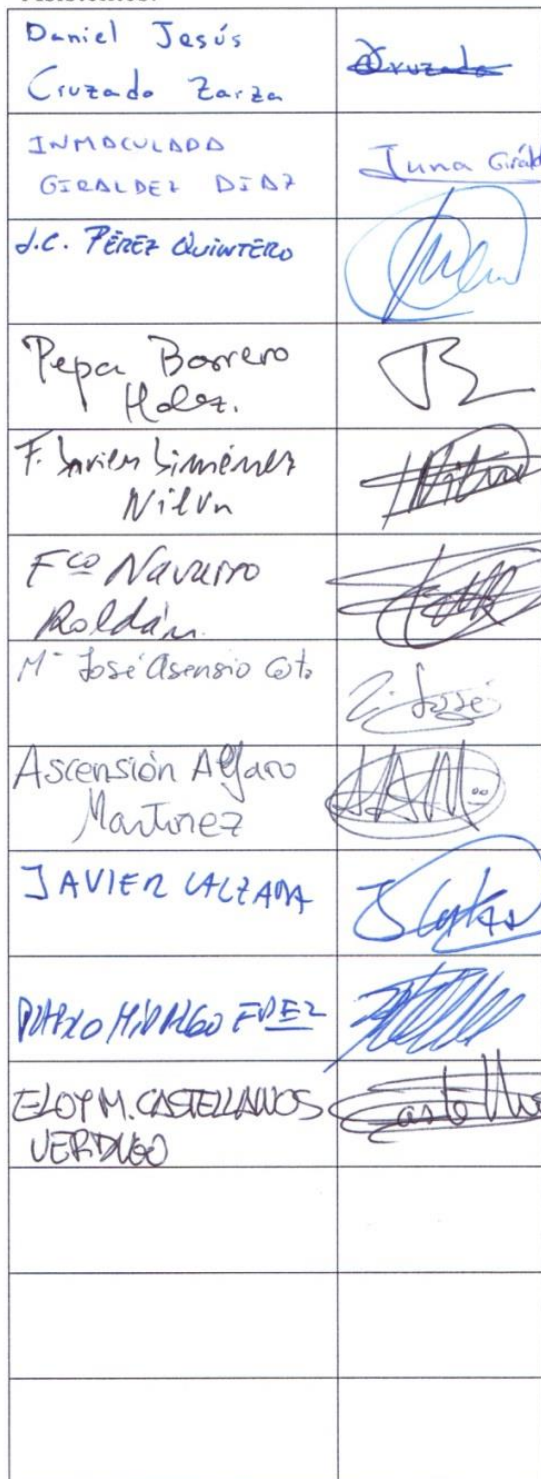 Daniel Jesús
Cruzado Zarza
Cruzado
INMACULADA
GIRALDEZ DIAZ
Inma Giráld
J.C. PÉREZ QUINTERO
Pepa Borrero
F. Javier Jiménez
Fco Navarro
Roldán
Mª José Asensio Coto
Mª José
Ascensión Alfaro
Martínez
JAVIER CALZADA
HIDALGO FDEZ
ELOY M. CASTELLANOS
VERDUGO